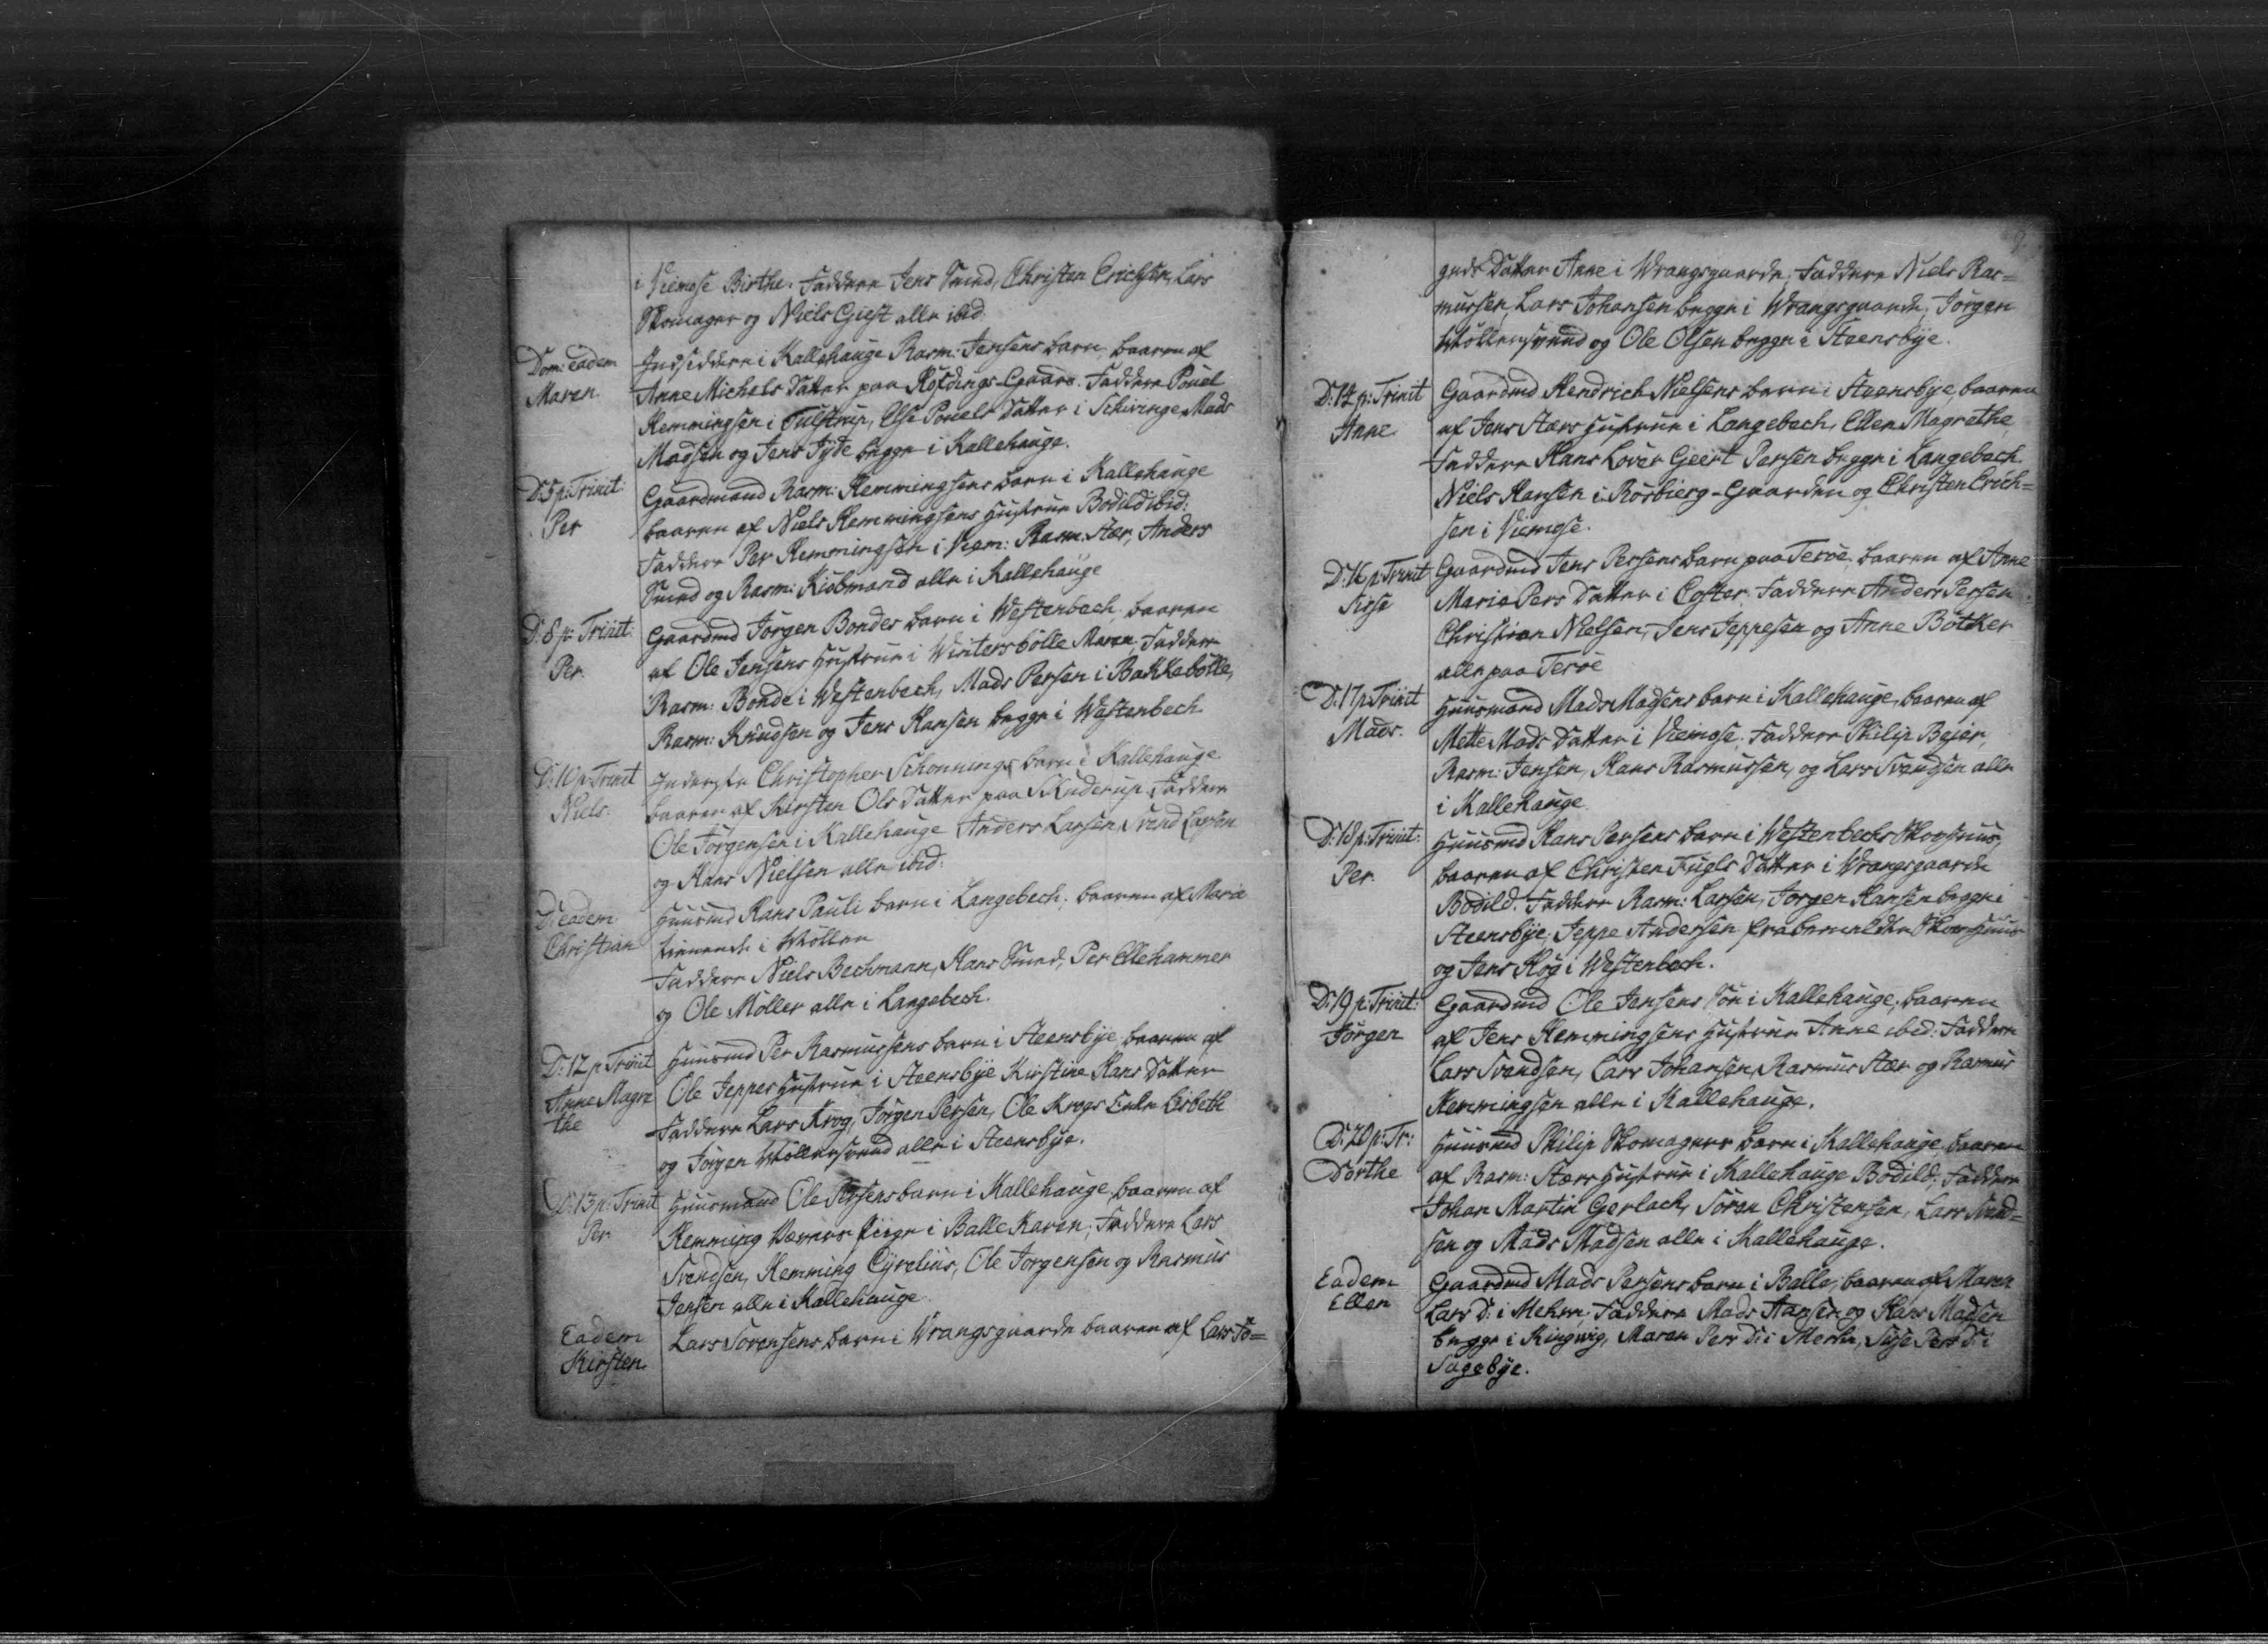 i Viemose Birthe. Faddere Jens Smed, Christen Erichsen, Lars
Skomager og Niels Giest alle ibid.
Dom: eadem
Maren.
Indsidder i Kallehauge Rasm: Jensens barn, baaren af
Anne Michels Datter paa Høfdings-Gaard. Faddere Pouel
Hemmingsen i Tulstrup, Else Pouels Datter i Schivinge Mads
Madsen og Jens Jyde begge i Kallehauge.
D: 5 p: Trinit:
Per
Gaardmand Rasm: Hemmingsens barn i Kallehauge
baaren af Niels Hemmingsens Hustrue Bodild ibid:
Faddere Per Hemmingsen i Viem: Rasm: Stær, Anders
Smed og Rasm: Kiøbmand alle i Kallehauge
D: 8 p: Trinit:
Per.
Gaardmd Jørgen Bondes barn i Westenbech, baaren
af Ole Jensens Hustrue i Wintersbølle Maren, Faddere
Rasm: Bonde i Westenbech, Mads Persen i Bakkebølle,
Rasm: Knudsen og Jens Hansen begge i Westenbech.
D: 10 p: Trinit
Niels.
Inderste Christopher Schønnings barn i Kallehauge
baaren af Kirsten Ols Datter paa Skuderup. Faddere
Ole Jørgensen i Kallehauge Anders Larsen, Svend Larsen
og Hans Nielsen alle ibid:
D: eadem
Christian
Huusmd Hans Pauli barn i Langebech, baaren af Maria
tienende i Møllen
Faddere Niels Bechmann, Hans Smed, Per Ellehammer
og Ole Møller alle i Langebech.
D: 12 p Trinit
Anne Magre
the
Huusmd Per Rasmussens barn i Steensbye baaren af
Ole Jeppes Hustrue i Steensbye Kirstine Hans Datter
Faddere Lars Krog, Jørgen Persen, Ole Krogs Enke Lisbeth
og Jørgen Møllersvend alle i Steensbye.
D: 13 p: Trinit
Per
Huusmand Ole Persens barn i Kallehauge, baaren af
Hemming Væveres Piige i Balle Karen, Faddere Lars
Svendsen, Hemming Cyrelius, Ole Jørgensen og Rasmus
Jensen alle i Kallehauge.
Eadem
Kirsten.
Lars Sørensens barn i Wrangsgaarde baaren af Lars Tø=
9.
gers Datter Anne i Wrangsgaarde, Faddere Niels Ras=
mussen, Lars Johansen begge i Wrangsgaarde, Jørgen
Møllersvend og Ole Olsen begge i Steensbye.
D: 14 p: Trinit
Anne
Gaardmd Hendrich Nielsens barn i Steensbye, baaren
af Jens Stærs Hustrue i Langebech, Ellen Magrethe
Faddere Hans Lover Geert Persen begge i Langebech.
Niels Hansen i Rosbierg-Gaarden og Christen Erich=
sen i Viemose.
D: 16 p Trinit
Sisse
Gaardmd Jens Persens barn paa Terøe, baaren af Anne
Maria Pers Datter i Coster. Faddere Anders Persen
Christian Nielsen, Jens Jeppesen og Anne Bøtker
alle paa Terøe
D: 17 p: Trinit
Mads.
Huusmand Mads Madsens barn i Kallehauge, baaren af
Mette Mads Datter i Viemose. Faddere Philip Beier,
Rasm: Jensen, Hans Rasmussen, og Lars Svendsen alle
i Kallehauge.
D: 18 p: Trinit:
Per.
Huusmd Hans Persens barn i Westenbechs Skovhuus,
baaren af Christen Fugls Datter i Wrangsgaarde
Bodild. Faddere Rasm: Larsen, Jørgen Hansen begge i
Steensbye, Jeppe Andersen fra bemeldte Skovhuus
og Jens Høg i Westenbech.
D: 19 p: Trinit:
Jørgen
Gaardmd Ole Jensens Søn i Kallehauge, baaren
af Jens Hemmingsens Hustrue Anne ibid: Faddere
Lars Svendsen, Lars Johansen, Rasmus Stær og Rasmus
Hemmingsen alle i Kallehauge.
D: 20 p: Tr:
Dorthe
Huusmd Philip Skomagers barn i Kallehauge, baaren
af Rasm: Stærs Hustrue i Kallehauge Bodild, Faddere
Johan Martin Gerlach, Søren Christensen, Lars Svend=
sen og Mads Madsen alle i Kallehauge.
Eadem
Ellen
Gaardmd Mads Persens barn i Balle, baaren af Maren
Lars D: i Mehrn, Faddere Mads Hansen og Hans Madsen
begge i Kingwig, Maren Pers D: i Mehrn, Sisse Pers D: i
Sagebye.